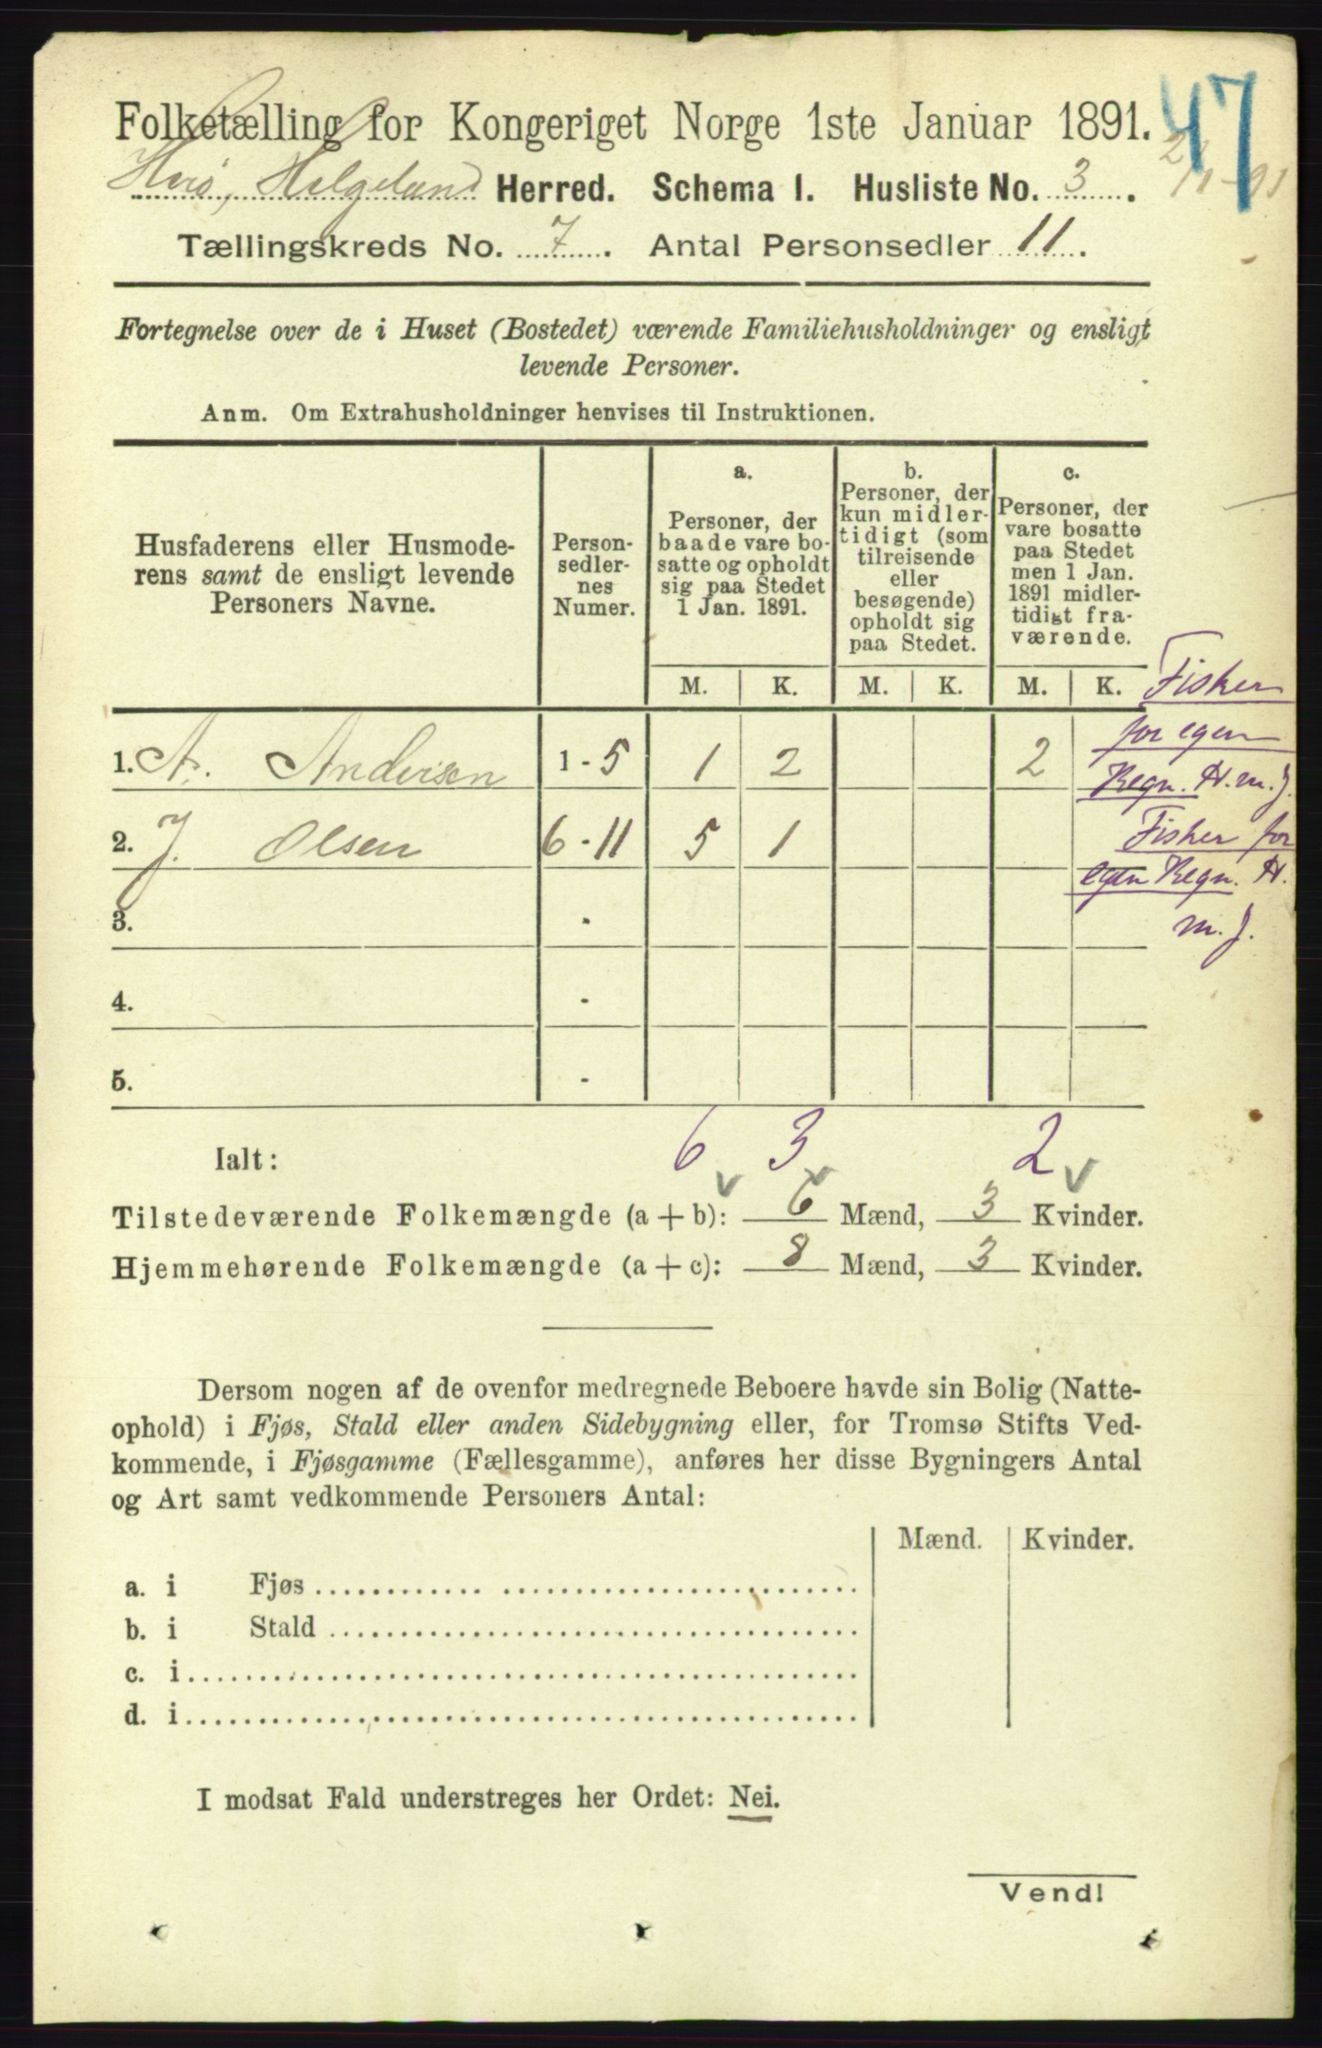 47
Folketælling for Kongeriget Norge 1ste Januar 1891.
Herø, Helgeland Herred. Schema I. Husliste No. 3.
Tællingskreds No. 7. Antal Personsedler 11.
Fortegnelse over de i Huset (Bostedet) værende Familiehusholdninger og ensligt
levende Personer.
Anm. Om Extrahusholdninger henvises til Instruktionen.
Husfaderens eller Husmode-
rens samt de ensligt levende
Personers Navne.
Person-
sedler-
nes
Numer.
a.
Personer, der
baade vare bo-
satte og opholdt
sig paa Stedet
1 Jan. 1891.
b.
Personer, der
kun midler-
tidigt (som
tilreisende
eller
besøgende)
opholdt sig
paa Stedet.
c.
Personer, der
vare bosatte
paa Stedet
men 1 Jan.
1891 midler-
tidigt fra-
værende.
M. K. M. K. M. K.
1. A. Andersen 1-5 1 2 2
Fisker
for egen
Regn. H. m. J.
2. J. Olsen 6-11 5 1
Fisker for
egen Regn. H.
m. J.
3. -
4. -
5. -
Ialt: 6 3 2
Tilstedeværende Folkemængde (a + b): 6 Mænd, 3 Kvinder.
Hjemmehørende Folkemængde (a + c): 8 Mænd, 3 Kvinder.
Dersom nogen af de ovenfor medregnede Beboere havde sin Bolig (Natte-
ophold) i Fjøs, Stald eller anden Sidebygning eller, for Tromsø Stifts Ved-
kommende, i Fjøsgamme (Fællesgamme), anføres her disse Bygningers Antal
og Art samt vedkommende Personers Antal:
Mænd. Kvinder.
a. i Fjøs
b. i Stald
c. i
d. i
I modsat Fald understreges her Ordet: Nei.
Vend!